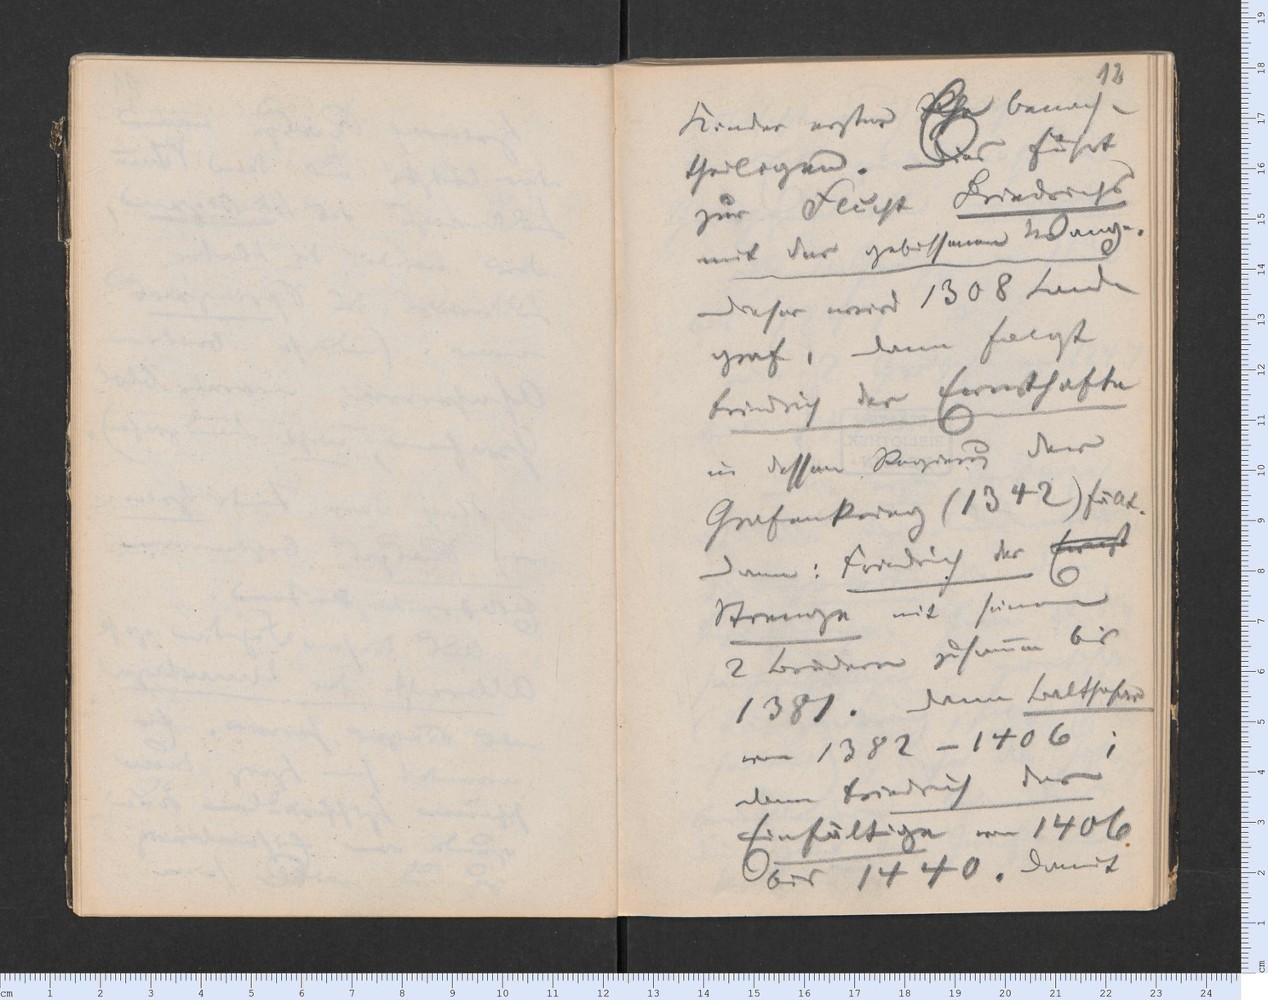 12
Kinder erster Ehe benach-
theiligen. Das führt
zur Flucht Friedrichs
mit der gebissenen Wange.
Dieser wird 1308 Land-
graf, dann folgt
Friedrich der Ernsthafte
in dessen Regierg der
Grafenkrieg (1342) fällt.
Dann: Friedrich der Ernst
Strenge mit seinen
2 Brüdern zusammen bis
1381. Dann Balthasar
von 1382 – 1406;
dann Friedrich der
Einfältige von 1406
bis 1440. Damit